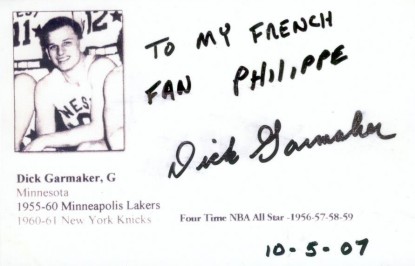 11 12
TO MY FRENCH
FAN PHILIPPE
WEST
Dick Garmaker
Dick Garmaker, G
Minnesota
1955-60 Minneapolis Lakers
1960-61 New York Knicks
Four Time NBA All Star -1956-57-58-59
10-5-07